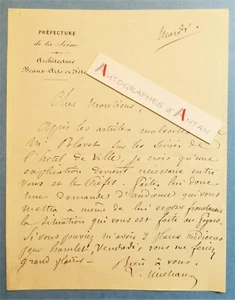 PRÉFECTURE
de la Seine
Architecture
Beaux-Arts et Fêtes
Mardi
AUTOGRAPHES D'ANTAN
Cher Monsieur,
Après les articles malveillants
M. Blavet sur les scènes de
l'hotel de Ville, je crois qu'une
explication devient nécessaire entre
vous et le Préfet. Faites lui donc
une demande d'audience qui vous
mettra à même de lui exposer franchement
la situation qui vous est faite au Figaro.
Si vous pouviez m'avoir 2 places médiocres
pour Hamlet, Vendredi, vous me feriez
grand plaisir
Bien à vous.